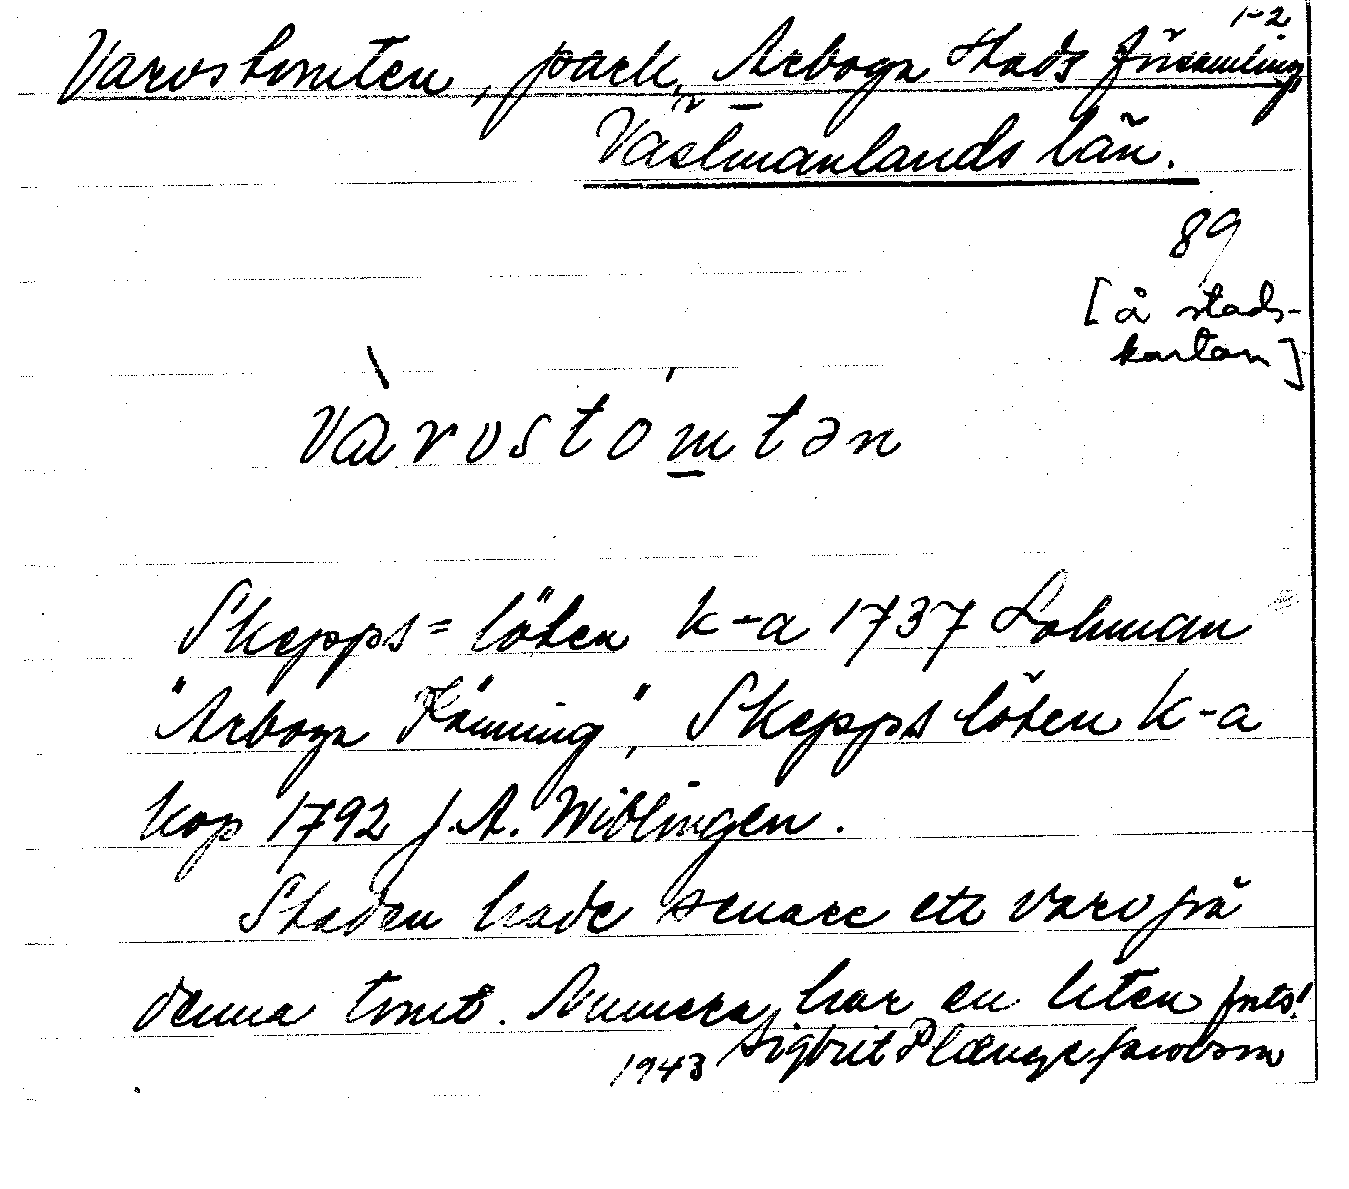 1-2
Varvstomten, park, Arboga stads församling
Västmanlands län.
89
[å stads-
kartan]
vàrvstómtən
Skepps= löten k-a 1737 Lohman
"Arboga Känning", Skepps löten k-a
kop 1792 J. A. Wiblingen.
Staden hade senare ett varv på
denna tomt. Numera har en liten forts!
1943 Sigbrit Plænge Jacobson